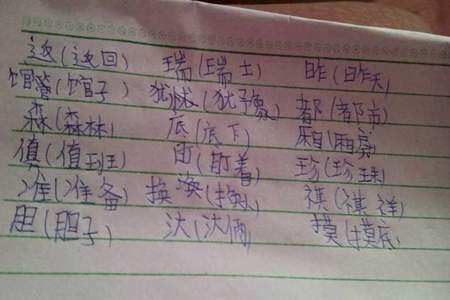 返(返回) 瑞(瑞士) 昨(昨天)
馆(馆子) 犹(犹豫) 都(都市)
森(森林) 底(底下) 厢(厢房)
值(值班) (盯着) 珍(珍珠)
准(准备) 换 祺(祺祥)
胆(胆子) 汰(汰俩) 摸(摸底)